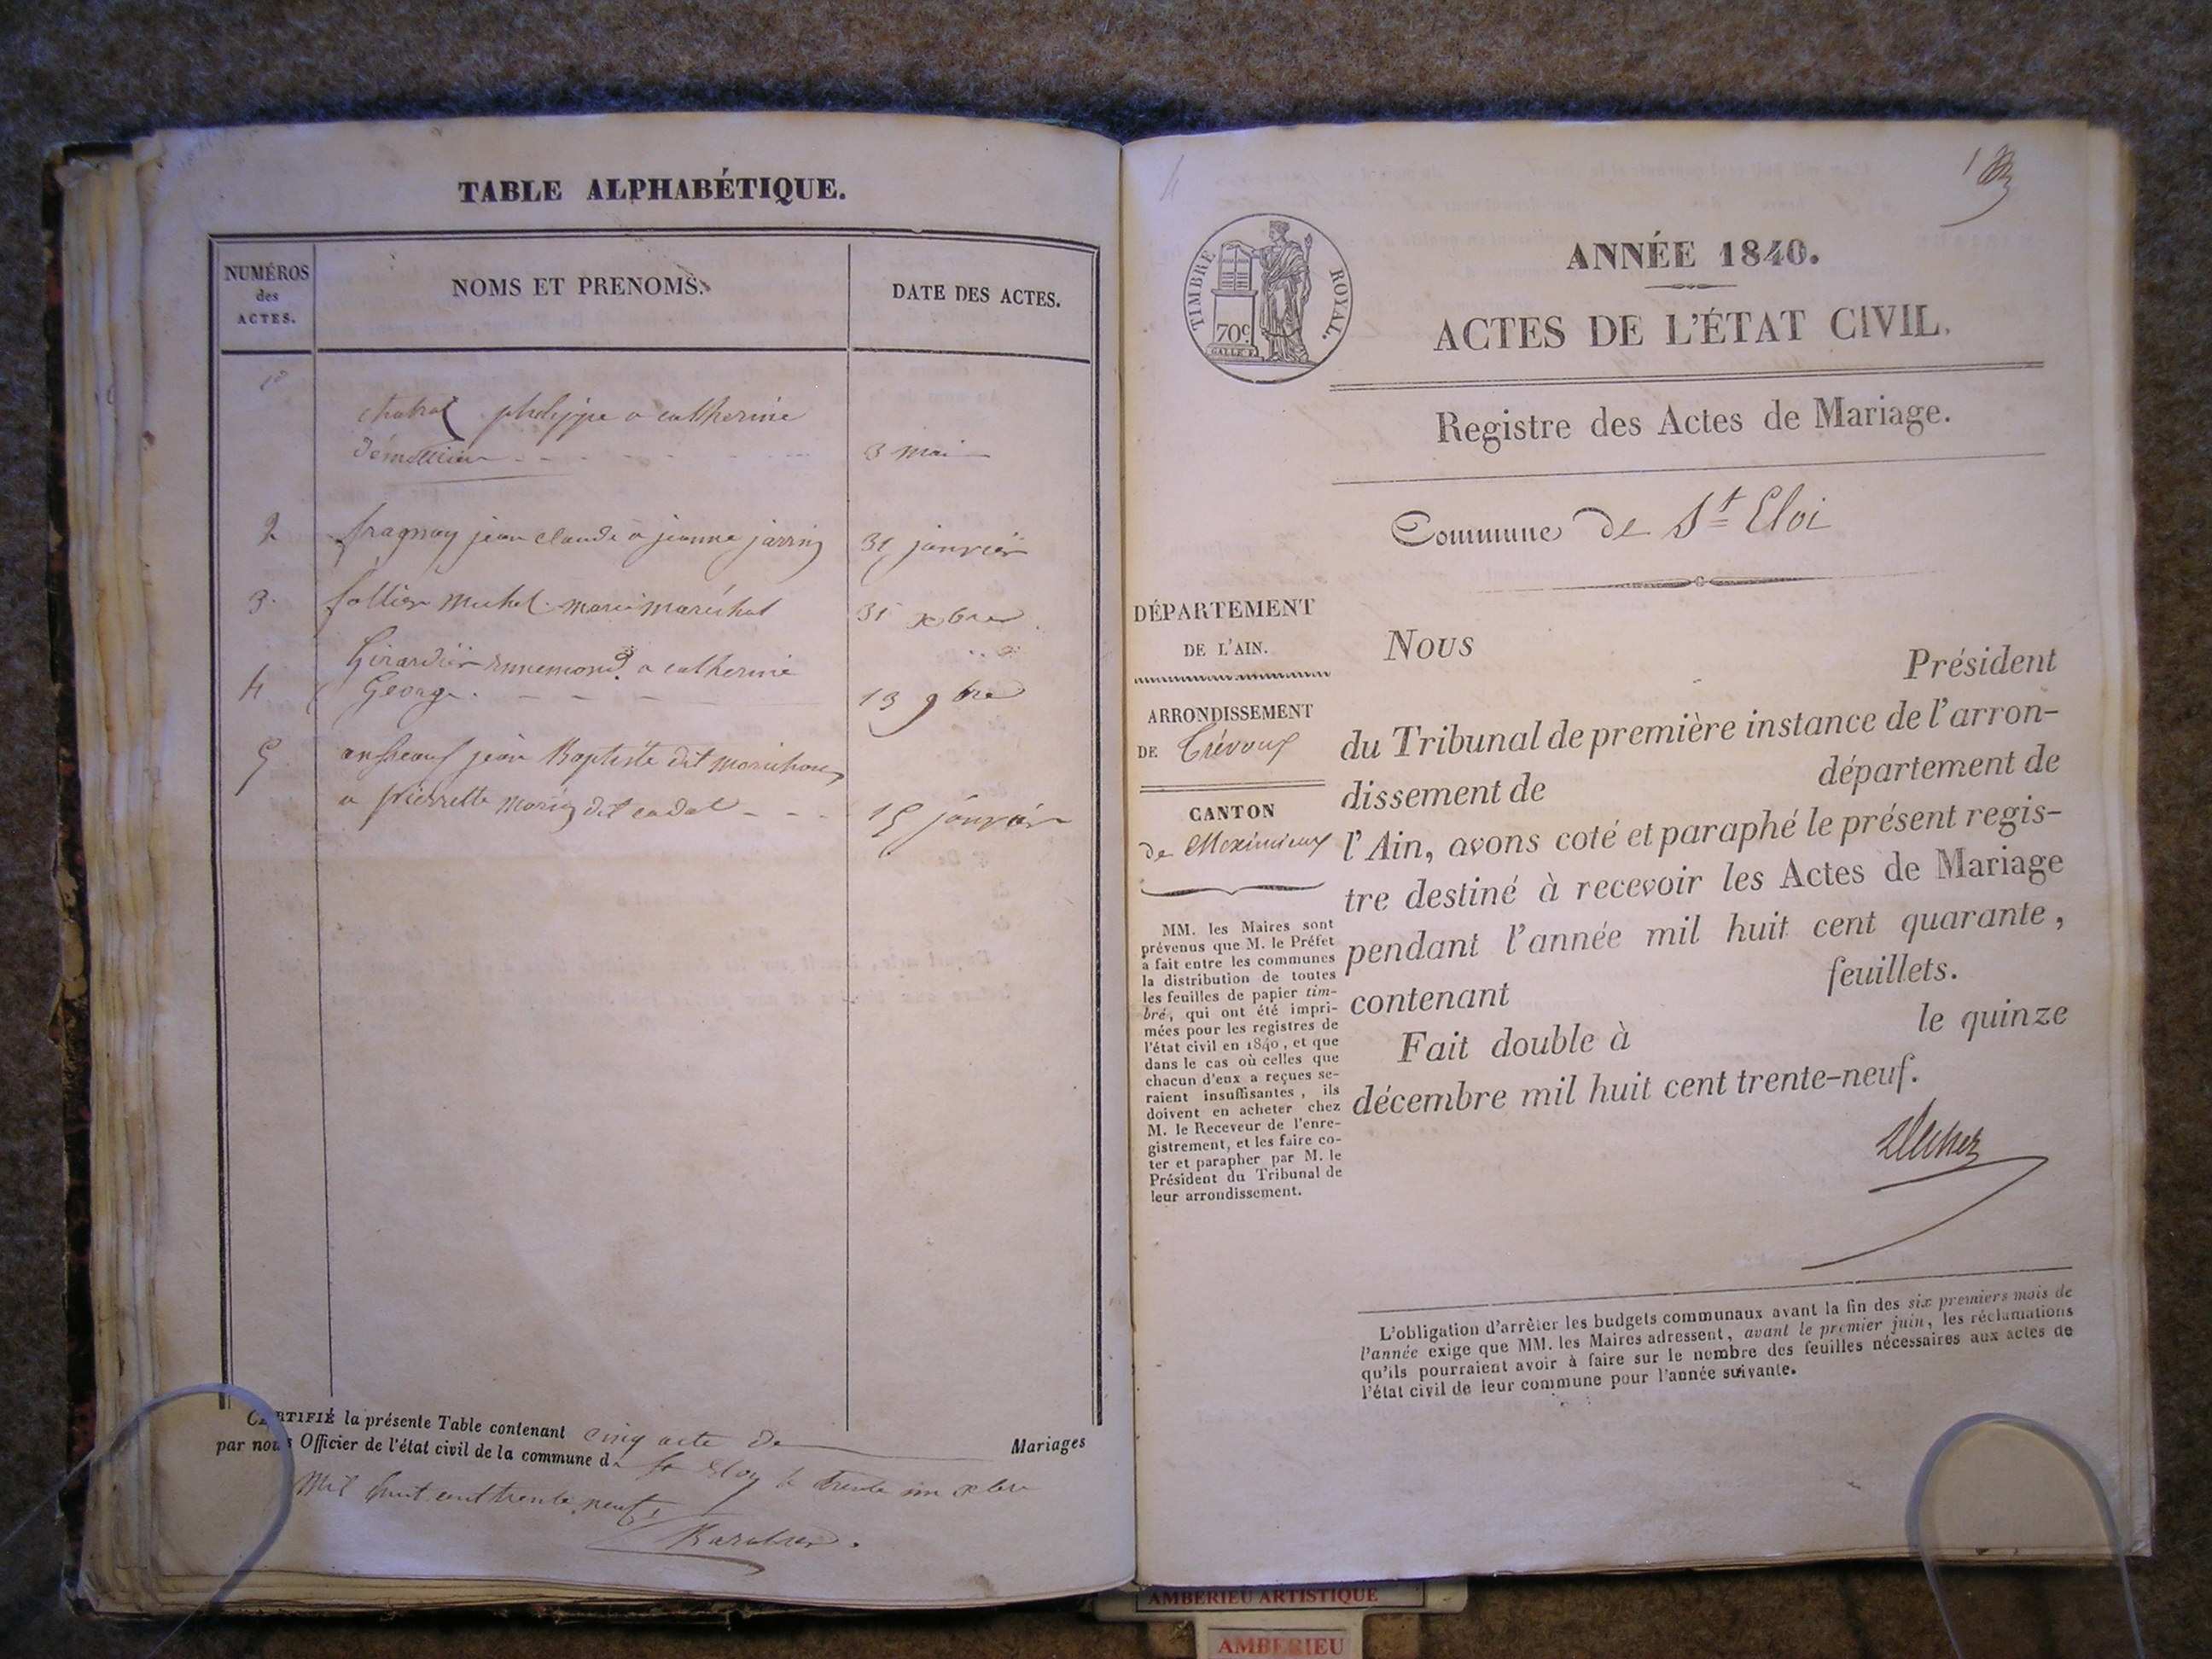 TABLE ALPHABÉTIQUE.
NUMÉROS
des
ACTES.
NOMS ET PRENOMS.
DATE DES ACTES.
1º
chatral philippe a catherine
3 mai
2 fragnay jean claude a jeanne jarrin 31 janvier
3. follier michel marie maréchal 31 xbre
Girardier ennemond a catherine
4 George. 13 9bre
5 jean Baptiste dit
a pierrette dit cadet 15 janvier
CERTIFIÉ la présente Table contenant cinq acte de Mariages
par nous Officier de l'état civil de la commune de St Eloy le trente un xbre
mil huit cent trente neuf.
1
ANNÉE 1840.
TIMBRE ROYAL.
70c.
ACTES DE L'ÉTAT CIVIL.
Registre des Actes de Mariage.
Commune de St Eloi
DÉPARTEMENT
DE L'AIN.
ARRONDISSEMENT
DE Trévoux
CANTON
de Meximieux
MM. les Maires sont
prévenus que M. le Préfet
a fait entre les communes
la distribution de toutes
les feuilles de papier tim-
bré, qui ont été impri-
mées pour les registres de
l'état civil en 1840, et que
dans le cas où celles que
chacun d'eux a reçues se-
raient insuffisantes, ils
doivent en acheter chez
M. le Receveur de l'enre-
gistrement, et les faire co-
ter et parapher par M. le
Président du Tribunal de
leur arrondissement.
Nous Président
du Tribunal de première instance de l'arron-
dissement de département de
l'Ain, avons coté et paraphé le présent regis-
tre destiné à recevoir les Actes de Mariage
pendant l'année mil huit cent quarante,
contenant feuillets.
Fait double à le quinze
décembre mil huit cent trente-neuf.
L'obligation d'arrêter les budgets communaux avant la fin des six premiers mois de
l'année exige que MM. les Maires adressent, avant le premier juin, les réclamations
qu'ils pourraient avoir à faire sur le nombre des feuilles nécessaires aux actes de
l'état civil de leur commune pour l'année suivante.
AMBERIEU ARTISTIQUE
AMBERIEU